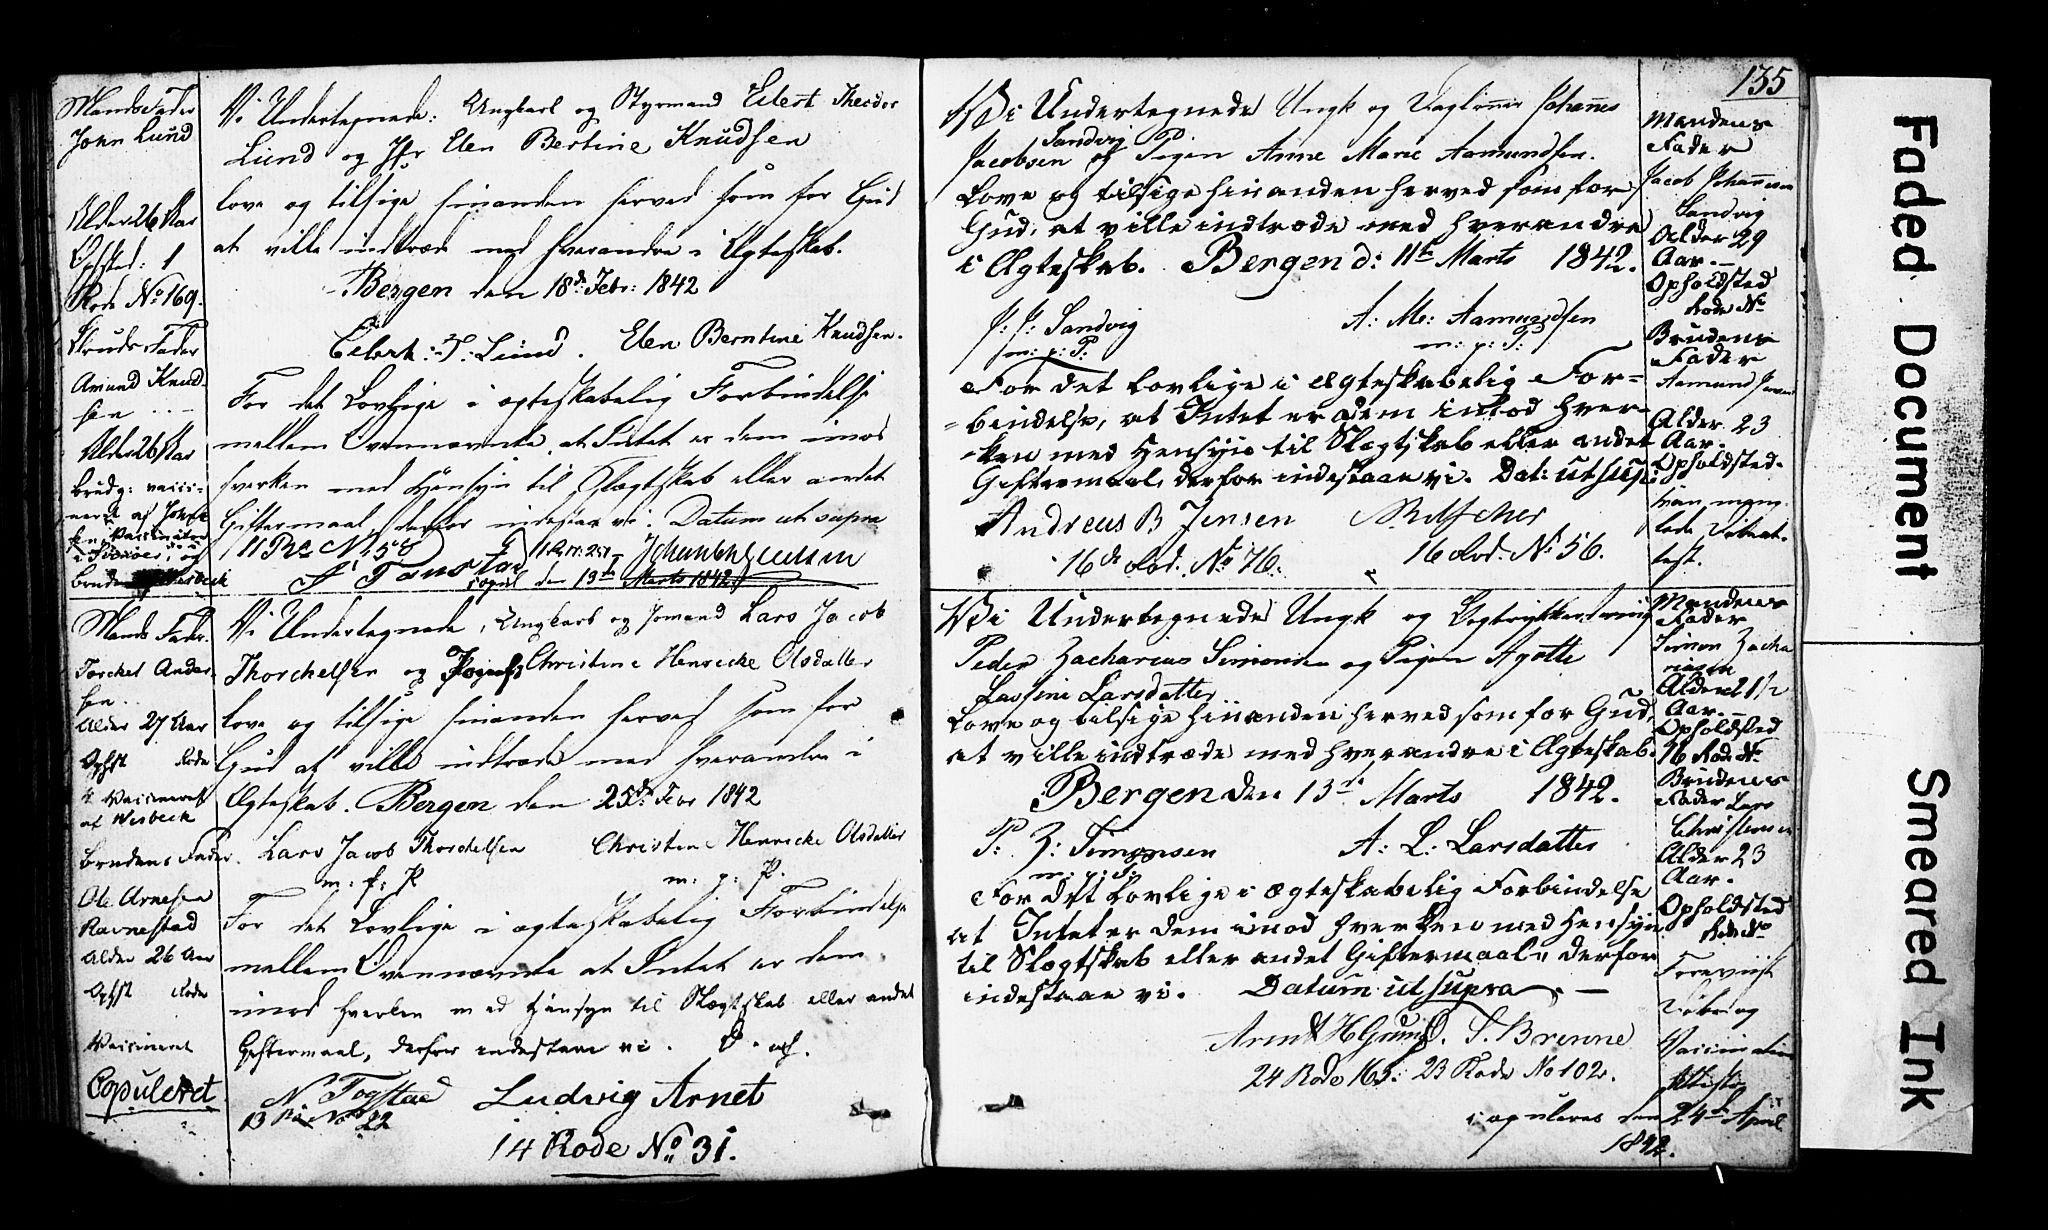 Mands Fader
John Lund
Alder 26 Aar
Opsted: 1
Rode No 169.
Bruds Fader
Amund Knud-
sen
Alder 26 Aar
Vi Undertegnede: Ungkarl og Styrmand Eilert Theodor
Lund og Jfr Elen Bertine Knudsen
love og tilsige hinanden herved som for Gud
at ville indtræde med hverandre i Ægteskab.
Bergen den 18de Febr: 1842
Eilert: T: Lund. Elen Berntine Knudsen.
For det Lovlige i ægteskabelig Forbindelse
mellem Ovennævnte, at Intet er dem imod
hverken med Hensyn til Slægtskab eller andet
Giftermaal, derfor indestaae vi. Datum ut supra
11 Rode No 58
den 13de Marts 1842
Mands Fader.
Torckel Ander-
sen
Alder 27 Aar
Ophst Rode
Vaccineret
af Wisbeck
Brudens Fader.
Ole Arnesen
Ravnestad
Alder 26 Aar
Ophst Rode
Vaccineret
Copuleret
Vi Undertegnede, Ungkarl og Lars Jacob
Thorchelsen og Pigen Christine Henricke Olsdatter
love og tilsige hinanden herved som for
Gud at ville indtræde med hverandre i
Ægteskab. Bergen den 25de Febr 1842
Lars Jacob Thorchelsen Christine Henricke Olsdatter
m: f: P m: p: P.
For det Lovlige i ægteskabelig Forbindelse
mellem Ovennævnte at Intet er dem
imod hverken med Hensyn til Slægtskab eller andet
Giftermaal, derfor indestaae vi.
N Fogstad Ludvig Arnet
13 Rode No 22
14 Rode No 31.
135
Vi Undertegnede Ungk og Johannes
Sandvig
Jacobsen og Pigen Anne Marie Aamundsen.
Love og tilsige hinanden herved som for
Gud, at ville indtræde med hverandre
i Ægteskab. Bergen d: 11te Marts 1842.
J: J: Sandvig A: M: Aamundsen
m: p: P: m: p: P:
For det lovlige i ægteskabelig For-
bindelse, at Intet er dem imod hver-
ken med Hensyn til Slægtskab eller andet
Giftermaal, derfor indestaae vi. Dat: ut sup:
Andreas B Jensen
16de Rod. No 76. 16 Rod. No 56.
Mandens
Fader
Jacob Johannesen
Sandvig
Alder 29
Aar.
Opholdsted
Rode No
Brudens
Fader
Aamund
Alder 23
Aar.
Opholdsted.
Vi Undertegnede Ungk og
Peder Zacharias Simonsen og Pigen Agotte
Lassine Larsdatter
Love og tilsige hinanden herved som for Gud,
at ville indtræde med hverandre i Ægteskab.
Bergen den 13de Marts 1842.
P: Z: Simonsen A: L: Larsdatter
m: p: P.
For det Lovlige i ægteskabelig Forbindelse
at Intet er dem imod hverken med Hensyn
til Slægtskab eller andet Giftermaal, derfor
indestaae vi. Datum ut supra
S. Brenne
24 Rode 165: 23 Rode No 102.
Copuleret den 24de April
1842.
Mandens
Fader
Simon Zacha
riasen
Alder 21½
Aar.
Opholdsted
16 Rode No
Brudens
Fader Lars
Christensen
Alder 23
Aar.
Opholdsted
Rode No
Foreviist
Daabs og
Vaccination
Attester
Faded Document
Smeared Ink